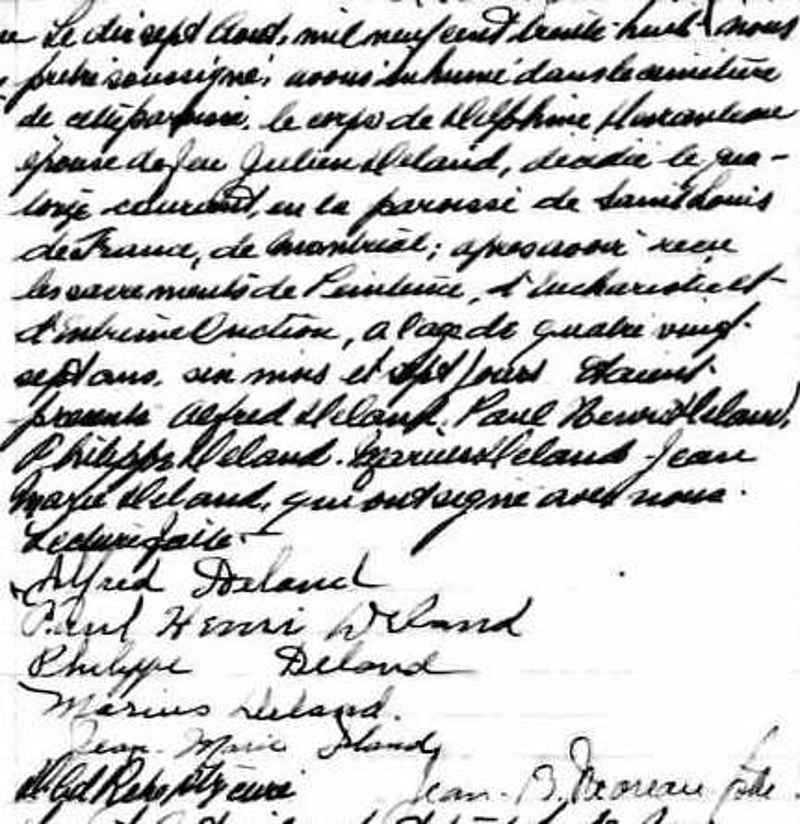 Le dix sept Aout, mil neuf cent trente-huit nous
prêtre soussigné, avons inhumé dans le cimetière
de cette paroisse, le corps de Delphine
épouse de feu Julien Deland, décédée le qua-
torze courant, en la paroisse de Saint Louis
de France, de Montréal; après avoir reçu
les sacrements de Penitence, d'Eucharistie et
d'Extrême Onction, a l'age de quatre vingt
sept ans, six mois et sept jours Etaient
presents Alfred Deland, Paul Henri Deland,
Philippe Deland. Marius Deland. Jean
Marie Deland, qui ont signé avec nous.
Lecture faite.
Alfred Deland
Paul Henri Deland
Philippe Deland
Marius Deland.
Jean-Marie Deland
Jean-B.